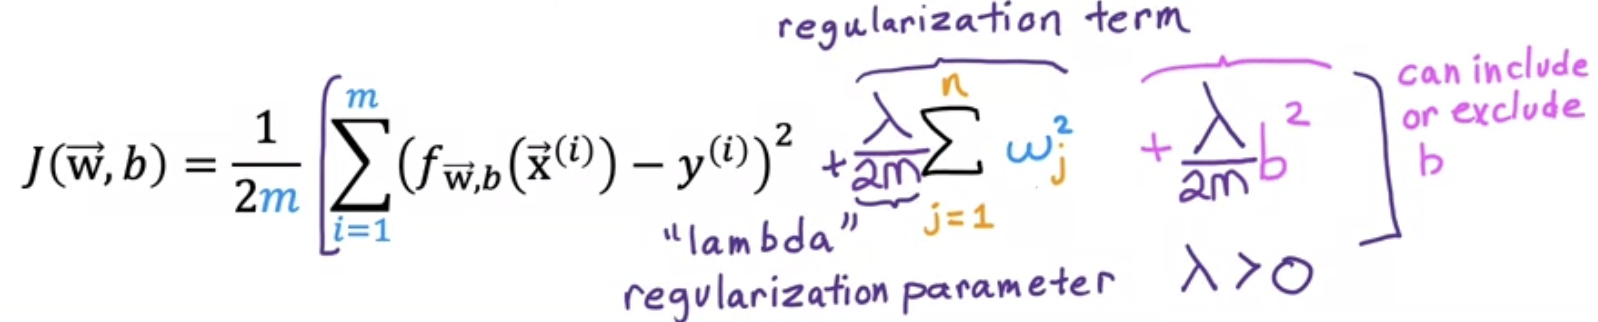 regularization term
J(w⃗, b) = 1/2m [ m∑i=1 (f w⃗,b (x⃗^(i)) − y^(i))² + λ/2m n∑j=1 w²j + λ/2m b² ]
can include
or exclude
b
"lambda"
regularization parameter
λ > 0